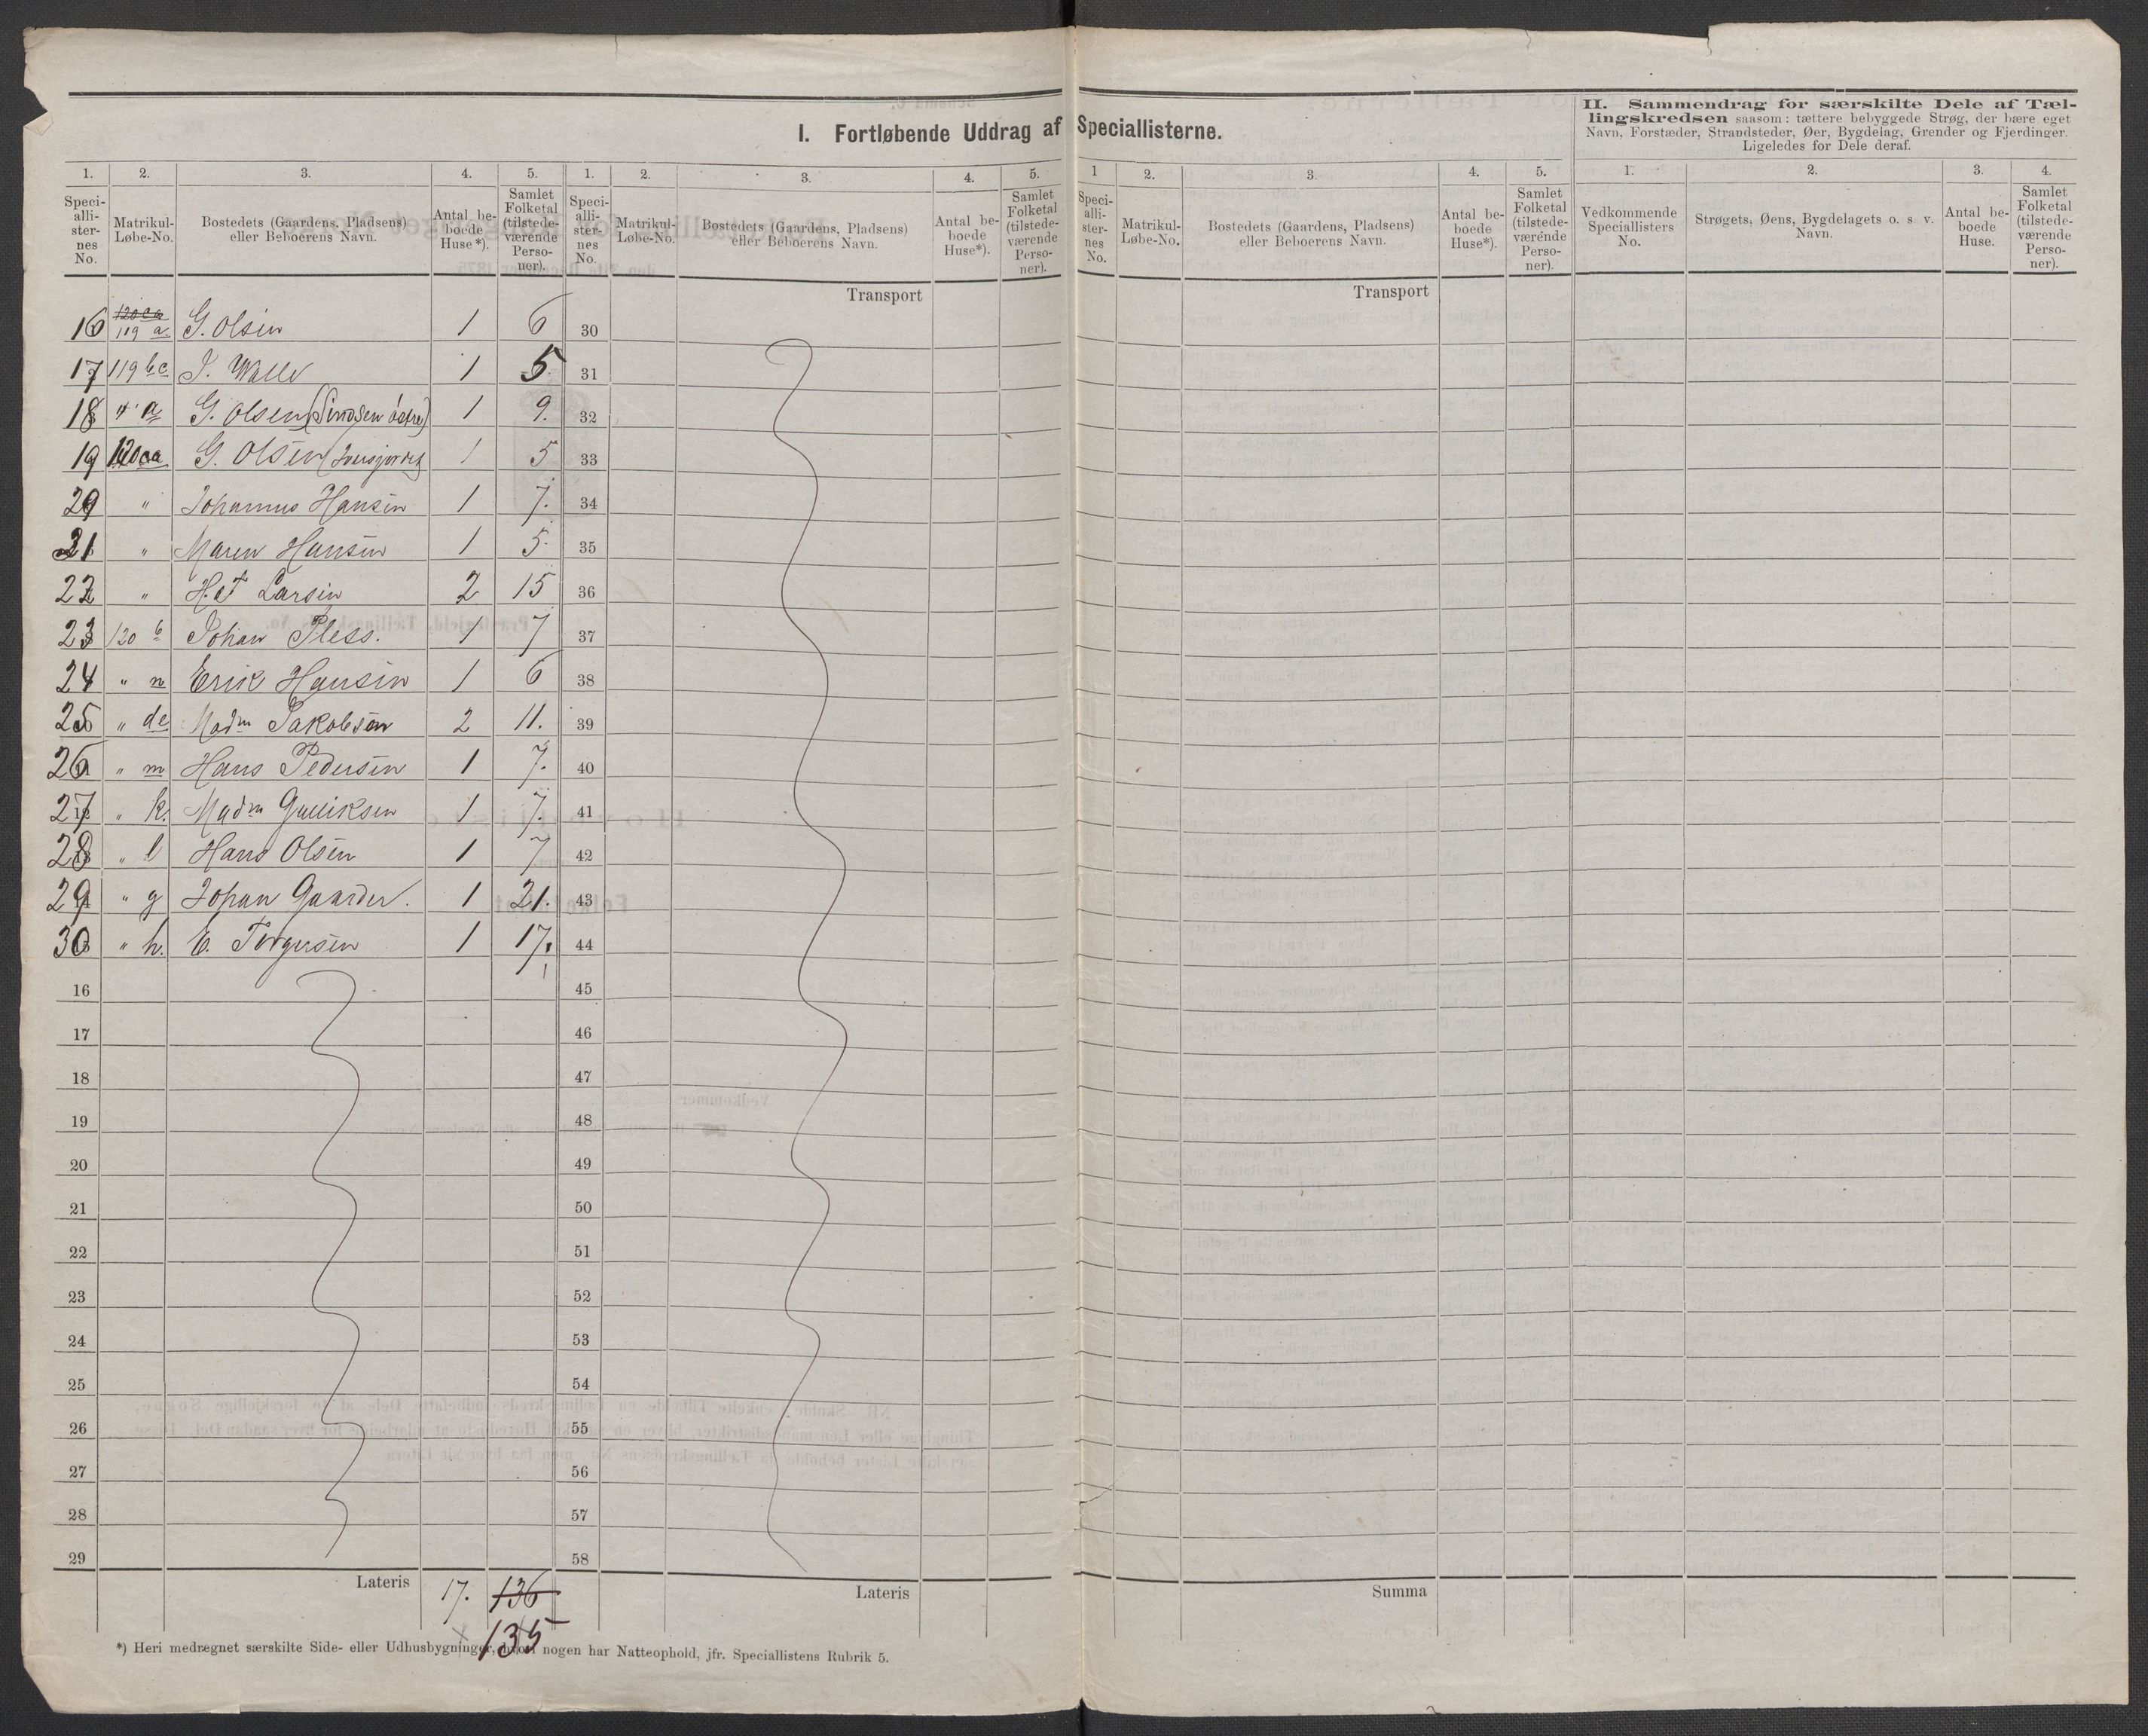 I. Fortløbende Uddrag af Speciallisterne.
II. Sammendrag for særskilte Dele af Tæl-
lingskredsen saasom: tættere bebyggede Strøg, der bære eget
Navn, Forstæder, Strandsteder, Øer, Bygdelag, Grender og Fjerdinger.
Ligeledes for Dele deraf.
1. 2. 3. 4. 5. 1. 2. 3. 4. 5. 1 2. 3. 4. 5. 1. 2. 3. 4.
Speci-
alli-
ster-
nes
No.
Matrikul-
Løbe-No.
Bostedets (Gaardens, Pladsens)
eller Beboerens Navn.
Antal be-
boede
Huse*).
Samlet
Folketal
(tilstede-
værende
Perso-
ner).
Speci-
alli-
ster-
nes
No.
Matrikul-
Løbe-No.
Bostedets (Gaardens, Pladsens)
eller Beboerens Navn.
Antal be-
boede
Huse*).
Samlet
Folketal
(tilstede-
værende
Perso-
ner).
Speci-
alli-
ster-
nes
No.
Matrikul-
Løbe-No.
Bostedets (Gaardens, Pladsens)
eller Beboerens Navn.
Antal be-
boede
Huse*).
Samlet
Folketal
(tilstede-
værende
Perso-
ner).
Vedkommende
Speciallisters
No.
Strøgets, Øens, Bygdelagets o. s. v.
Navn.
Antal be-
boede
Huse.
Samlet
Folketal
(tilstede-
værende
Perso-
ner).
Transport Transport
16 119 a G. Olsen 1 6 30
17 119 bc J. Walle 1 5 31
18 " a G. Olsen (Sinsen østre) 1 9. 32
19 120 aa G. Olsen 1 5 33
20 " Johannes Hansen 1 7. 34
21 " Maren Hansen 1 5. 35
22 " Larsen 2 15 36
23 120 b Johan Pless. 1 7 37
24 " n Erik Hansen 1 6 38
25 " de Madm Jakobsen 2 11. 39
26 " m Hans Pedersen 1 7. 40
27 " k. Madm Gulliksen 1 7. 41
28 " l Hans Olsen 1 7 42
29 " g Johan Gaarder. 1 21. 43
30 " h. E. Torgersen 1 17. 44
16 45
17 46
18 47
19 48
20 49
21 50
22 51
23 52
24 53
25 54
26 55
27 56
28 57
29 58
Lateris 17. 136 Lateris Summa
135
*) Heri medregnet særskilte Side- eller Udhusbygninger, hvori nogen har Natteophold, jfr. Speciallistens Rubrik 5.